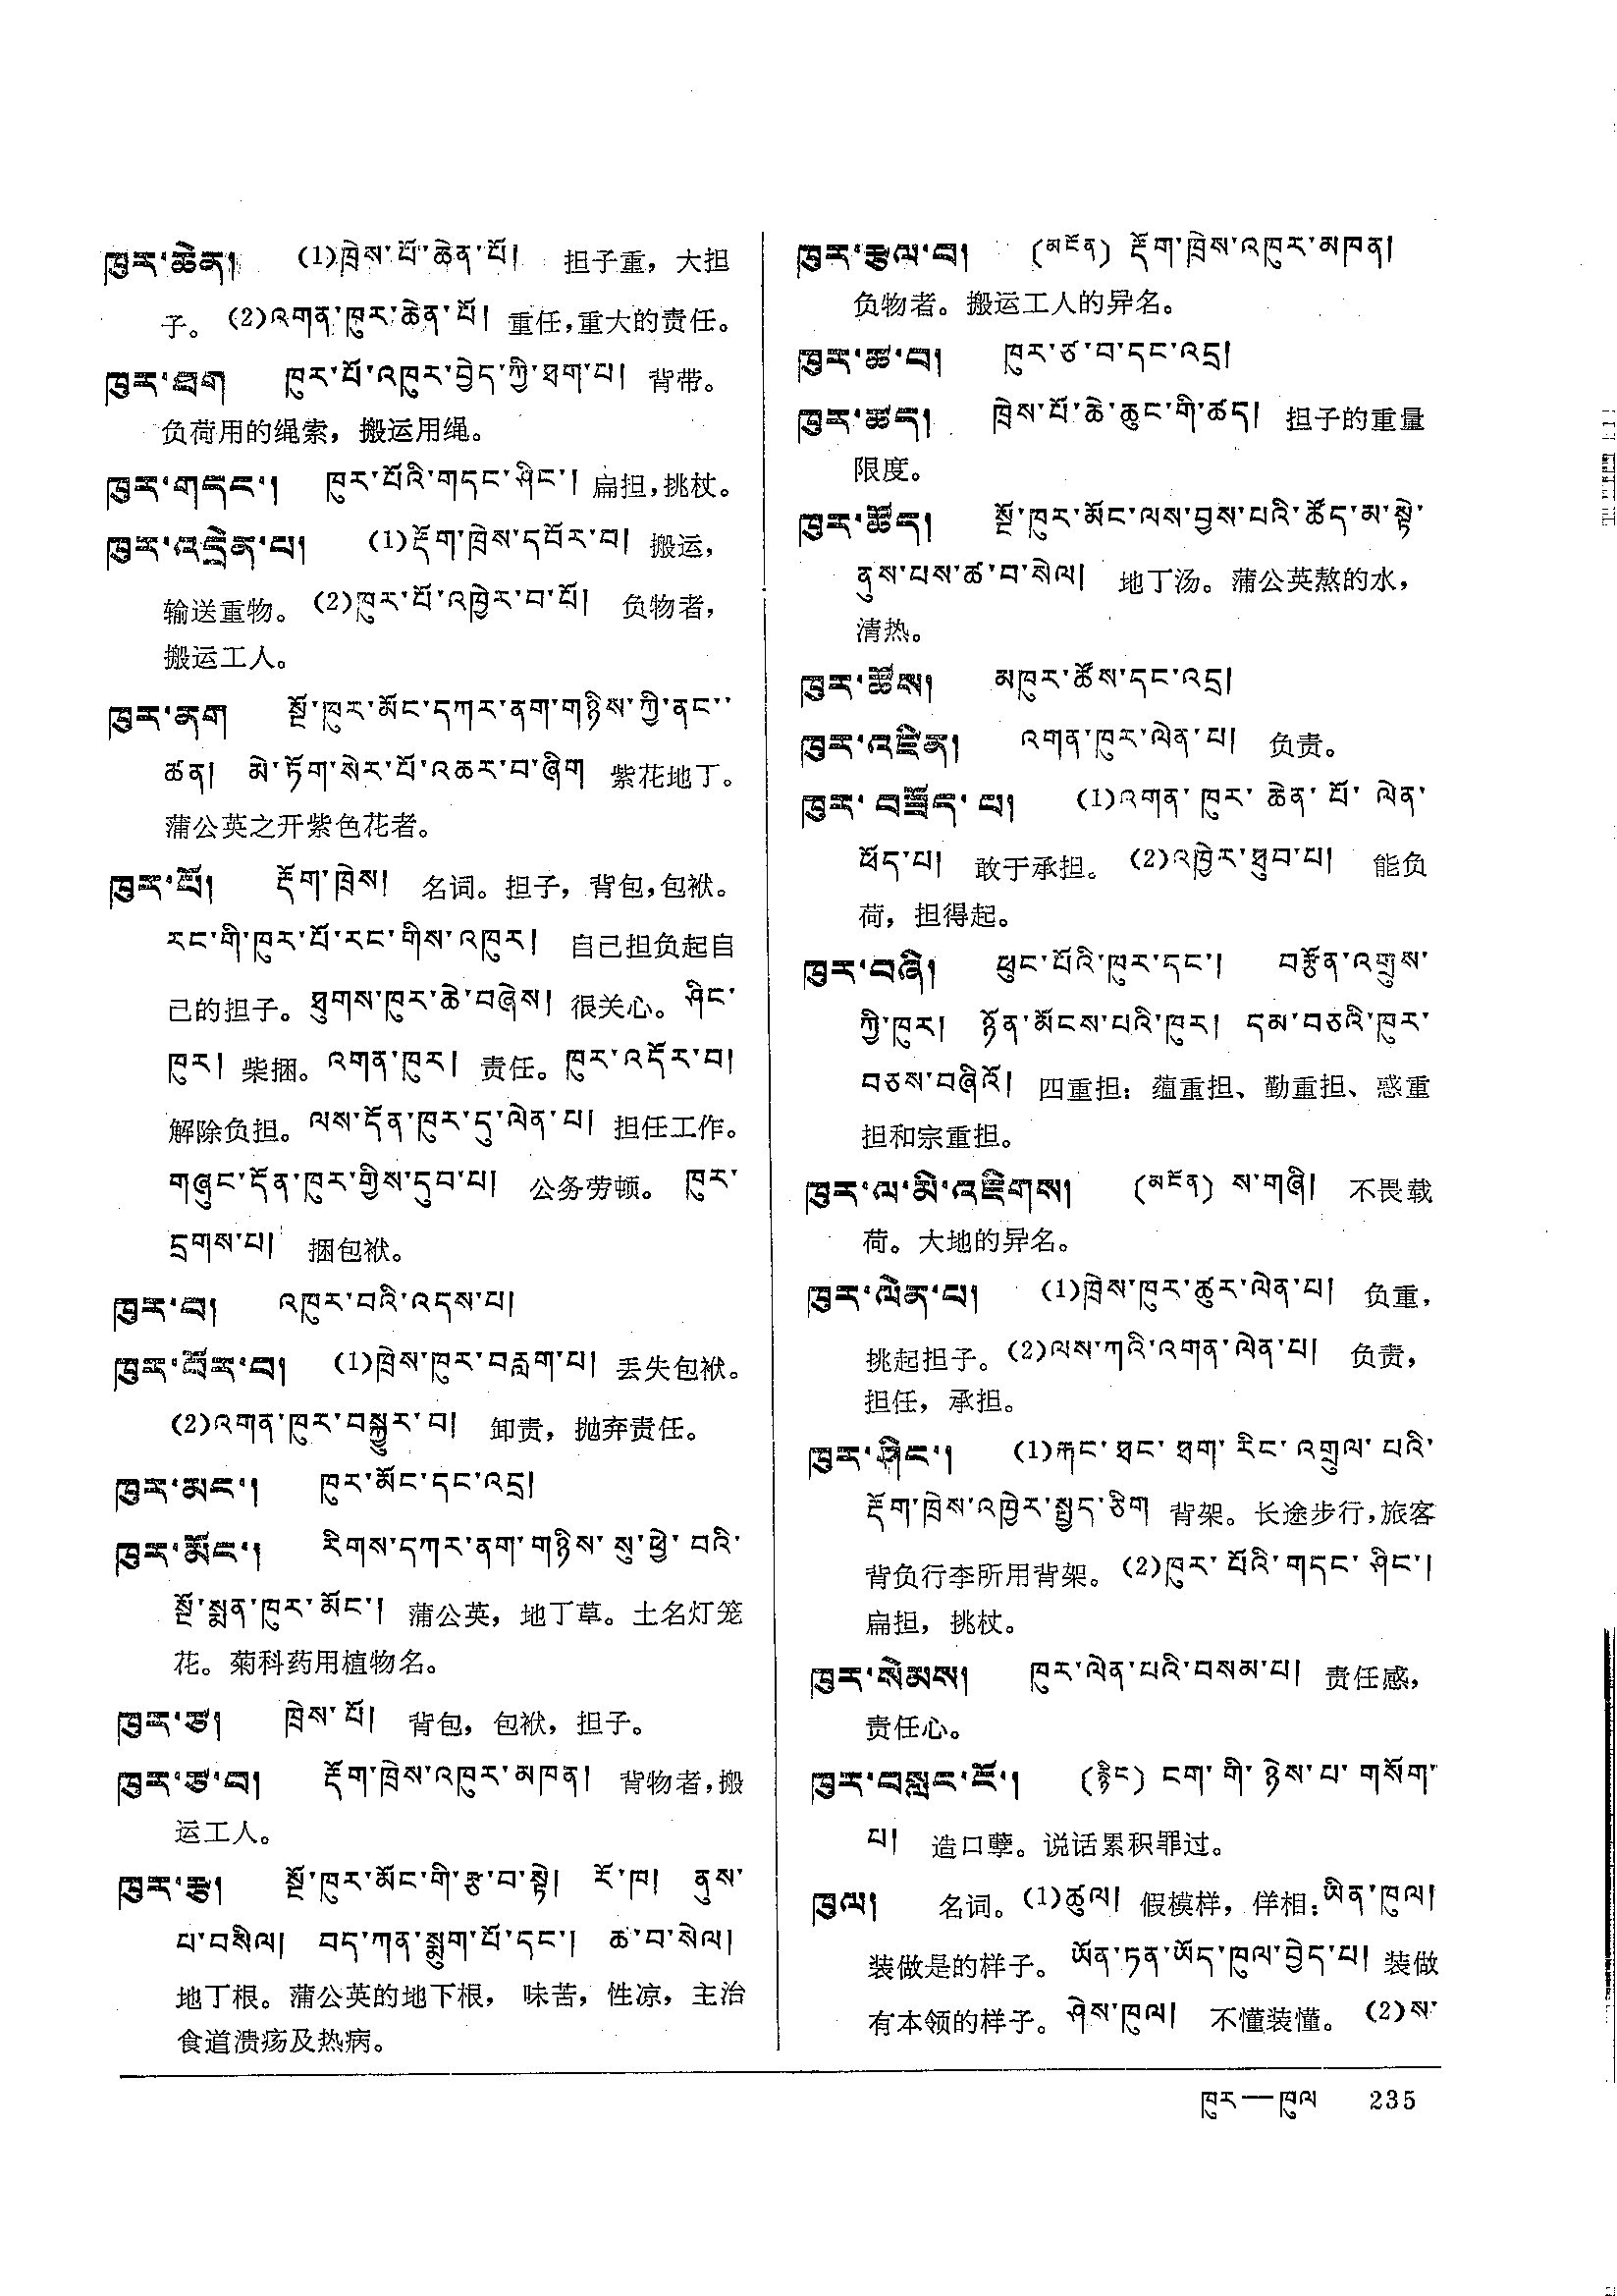 ཁུར་ཆེན། (1)ཁྲེས་པོ་ཆེན་པོ། 担子重，大担
子。(2)འགན་ཁུར་ཆེན་པོ། 重任，重大的责任。
ཁུར་ཐག ཁུར་པོ་འཁུར་བྱེད་ཀྱི་ཐག་པ། 背带。
负荷用的绳索，搬运用绳。
ཁུར་གདང་། ཁུར་པོའི་གདང་ཤིང་། 扁担，挑杖。
ཁུར་འདྲེན་པ། (1)དོག་ཁྲེས་དཔོར་བ། 搬运，
输送重物。(2)ཁུར་པོ་འཁྱེར་བ་པོ། 负物者，
搬运工人。
ཁུར་ནག སྔོ་ཁུར་མོང་དཀར་ནག་གཉིས་ཀྱི་ནང་་
ཚན། མེ་ཏོག་སེར་པོ་འཆར་བ་ཞིག 紫花地丁。
蒲公英之开紫色花者。
ཁུར་པོ། དོག་ཁྲེས། 名词。担子，背包，包袱。
རང་གི་ཁུར་པོ་རང་གིས་འཁུར། 自己担负起自
己的担子。ཐུགས་ཁུར་ཆེ་བཞེས། 很关心。ཤིང་
ཁུར། 柴捆。འགན་ཁུར། 责任。ཁུར་འདོར་བ།
解除负担。ལས་དོན་ཁུར་དུ་ལེན་པ། 担任工作。
གཞུང་དོན་ཁུར་གྱིས་དུབ་པ། 公务劳顿。ཁུར་
དྲགས་པ། 捆包袱。
ཁུར་བ། འཁུར་བའི་འདས་པ།
ཁུར་བོར་བ། (1)ཁྲེས་ཁུར་བརླག་པ། 丢失包袱。
(2)འགན་ཁུར་བསྐྱུར་བ། 卸责，抛弃责任。
ཁུར་མང་། ཁུར་མོང་དང་འདྲ།
ཁུར་མོང་། རིགས་དཀར་ནག་གཉིས་སུ་ཕྱེ་བའི་
སྔོ་སྨན་ཁུར་མོང་། 蒲公英，地丁草。土名灯笼
花。菊科药用植物名。
ཁུར་ཙ། ཁྲེས་པོ། 背包，包袱，担子。
ཁུར་ཙ་བ། དོག་ཁྲེས་འཁུར་མཁན། 背物者，搬
运工人。
ཁུར་རྩ། སྔོ་ཁུར་མོང་གི་རྩ་བ་སྟེ། རོ་ཁ། ནུས་
པ་བསིལ། བད་ཀན་སྨུག་པོ་དང་། ཚ་བ་སེལ།
地丁根。蒲公英的地下根，味苦，性凉，主治
食道溃疡及热病。
ཁུར་རྩལ་བ། (མངོན) དོག་ཁྲེས་འཁུར་མཁན།
负物者。搬运工人的异名。
ཁུར་ཚ་བ། ཁུར་ཙ་བ་དང་འདྲ།
ཁུར་ཚད། ཁྲེས་པོ་ཆེ་ཆུང་གི་ཚད། 担子的重量
限度。
ཁུར་ཚོད། སྔོ་ཁུར་མོང་ལས་བྱས་པའི་ཚོད་མ་སྟེ་
ནུས་པས་ཚ་བ་སེལ། 地丁汤。蒲公英熬的水，
清热。
ཁུར་ཚོས། མཁུར་ཚོས་དང་འདྲ།
ཁུར་འཛིན། འགན་ཁུར་ལེན་པ། 负责。
ཁུར་བཟོད་པ། (1)འགན་ཁུར་ཆེན་པོ་ལེན་
ཕོད་པ། 敢于承担。(2)འཁྱེར་ཐུབ་པ། 能负
荷，担得起。
ཁུར་བཞི། ཕུང་པོའི་ཁུར་དང་། བརྩོན་འགྲུས་
ཀྱི་ཁུར། ཉོན་མོངས་པའི་ཁུར། དམ་བཅའི་ཁུར་
བཅས་བཞིའོ། 四重担：蕴重担、勤重担、惑重
担和宗重担。
ཁུར་ལ་མི་འཇིགས། (མངོན) ས་གཞི། 不畏载
荷。大地的异名。
ཁུར་ལེན་པ། (1)ཁྲེས་ཁུར་ཚུར་ལེན་པ། 负重，
挑起担子。(2)ལས་ཀའི་འགན་ལེན་པ། 负责，
担任，承担。
ཁུར་ཤིང་། (1)རྐང་ཐང་ཐག་རིང་འགྲུལ་པའི་
དོག་ཁྲེས་འཁྱེར་སྤྱད་ཅིག 背架。长途步行，旅客
背负行李所用背架。(2)ཁུར་པོའི་གདང་ཤིང་།
扁担，挑杖。
ཁུར་སེམས། ཁུར་ལེན་པའི་བསམ་པ། 责任感，
责任心。
ཁུར་བསླང་ངོ་། (རྙིང) ངག་གི་ཉེས་པ་གསོག་
པ། 造口孽。说话累积罪过。
ཁུལ། 名词。(1)ཚུལ། 假模样，佯相：ཡིན་ཁུལ།
装做是的样子。ཡོན་ཏན་ཡོད་ཁུལ་བྱེད་པ། 装做
有本领的样子。ཤེས་ཁུལ། 不懂装懂。(2)ས་
ཁུར—ཁུལ 235